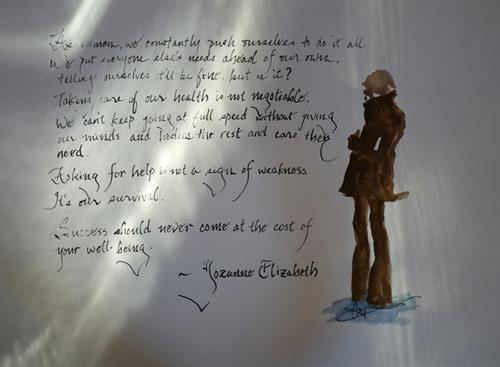 As women, we constantly push ourselves to do it all.
We put everyone else's needs ahead of our own,
telling ourselves it'll be fine. but is it?
Taking care of our health is not negotiable.
We can't keep going at full speed without giving
our minds and bodies the rest and care they
need.
Asking for help is not a sign of weakness
It's our survival.
Success should never come at the cost of
your well-being.
~ Elizabeth